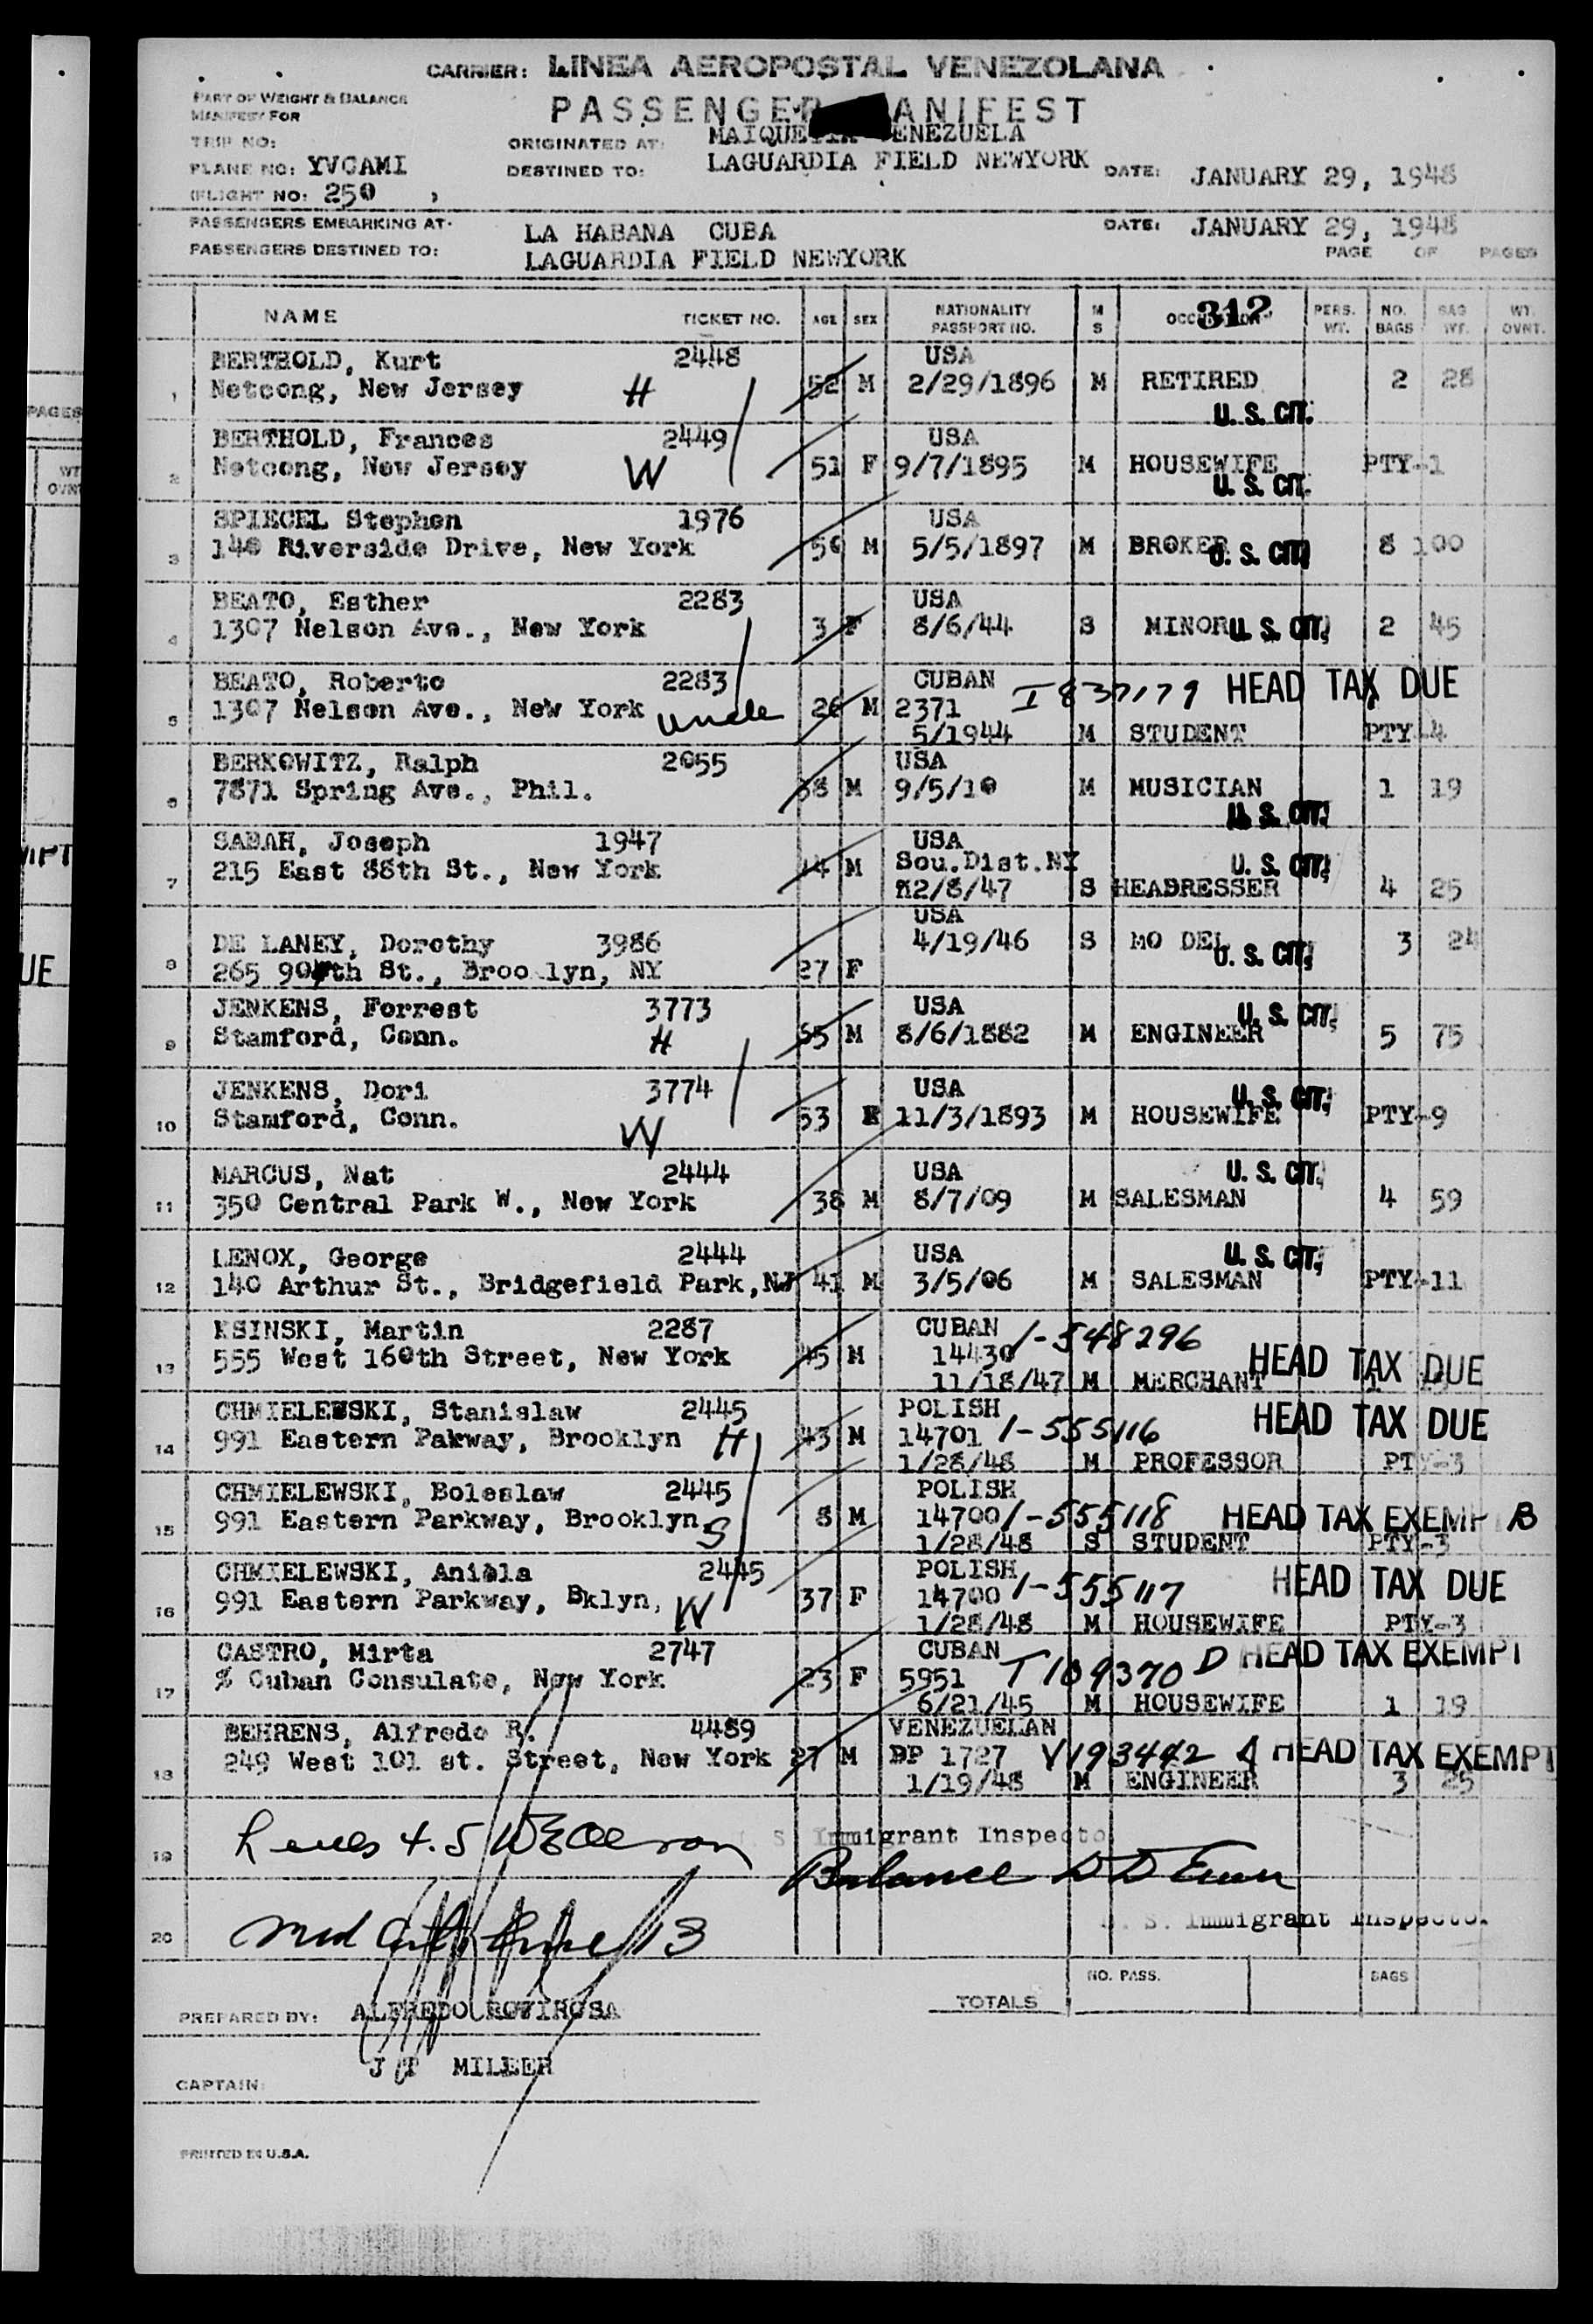 CARRIER: LINEA AEROPOSTAL VENEZOLANA
PART OF WEIGHT & BALANCE
MANIFEST FOR
PASSENGER ANIFEST
TRIP NO:
ORIGINATED AT: MAIQUE ENEZUELA
PLANE NO: YVCAMI
DESTINED TO: LAGUARDIA FIELD NEWYORK DATE: JANUARY 29, 1948
FLIGHT NO: 250
PASSENGERS EMBARKING AT: LA HABANA CUBA DATE: JANUARY 29, 1948
PASSENGERS DESTINED TO: LAGUARDIA FIELD NEWYORK PAGE OF PAGES
NAME TICKET NO. AGE SEX NATIONALITY PASSPORT NO. M S 312 PERS. WT. NO. BAGS BAG WT. WT. OVNT.
BERTHOLD, Kurt 2448 USA
1 Netcong, New Jersey H 52 M 2/29/1896 M RETIRED 2 28
U. S. CIT.
BERTHOLD, Frances 2449 USA
2 Netcong, New Jersey W 51 F 9/7/1895 M HOUSEWIFE PTY-1
U. S. CIT.
SPIEGEL Stephen 1976 USA
3 140 Riverside Drive, New York 50 M 5/5/1897 M BROKER U. S. CIT. 8 100
BEATO, Esther 2283 USA
4 1307 Nelson Ave., New York 3 F 8/6/44 S MINOR U. S. CIT. 2 45
BEATO, Roberto 2283 CUBAN I 837179 HEAD TAX DUE
5 1307 Nelson Ave., New York uncle 26 M 2371
5/1944 M STUDENT PTY-4
BERKOWITZ, Ralph 2055 USA
6 7871 Spring Ave., Phil. 38 M 9/5/10 M MUSICIAN 1 19
U. S. CIT.
SABAH, Joseph 1947 USA
7 215 East 88th St., New York 44 M Sou.Dist.NY U. S. CIT.
12/8/47 S HEADRESSER 4 25
USA
DE LANEY, Dorothy 3986 4/19/46 S MO DEL U. S. CIT. 3 24
8 265 90th St., Broo lyn, NY 27 F
JENKENS, Forrest 3773 USA U. S. CIT.
9 Stamford, Conn. H 65 M 8/6/1882 M ENGINEER 5 75
JENKENS, Dori 3774 USA U. S. CIT.
10 Stamford, Conn. W 53 F 11/3/1893 M HOUSEWIFE PTY-9
MARCUS, Nat 2444 USA U. S. CIT.
11 350 Central Park W., New York 38 M 8/7/09 M SALESMAN 4 59
LENOX, George 2444 USA U. S. CIT.
12 140 Arthur St., Bridgefield Park,NJ 41 M 3/5/06 M SALESMAN PTY-11
KSINSKI, Martin 2287 CUBAN 1-548296
13 555 West 160th Street, New York 45 M 14430 HEAD TAX DUE
11/18/47 M MERCHANT
CHMIELEWSKI, Stanislaw 2445 POLISH HEAD TAX DUE
14 991 Eastern Pakway, Brooklyn H 43 M 14701 1-555116
1/28/48 M PROFESSOR PTY-3
CHMIELEWSKI, Boleslaw 2445 POLISH
15 991 Eastern Parkway, Brooklyn S 8 M 14700 1-555118 HEAD TAX EXEMP B
1/28/48 S STUDENT PTY-3
CHMIELEWSKI, Aniela 2445 POLISH HEAD TAX DUE
16 991 Eastern Parkway, Bklyn, W 37 F 14700 1-555117
1/28/48 M HOUSEWIFE PTY-3
CASTRO, Mirta 2747 CUBAN HEAD TAX EXEMPT
17 % Cuban Consulate, New York 23 F 5951 T 109370 D
6/21/45 M HOUSEWIFE 1 19
BEHRENS, Alfredo R. 4489 VENEZUELAN
18 249 West 101 st. Street, New York 27 M DP 1727 V193442 HEAD TAX EXEMPT
1/19/48 M ENGINEER 3 25
19 4.5 S. Immigrant Inspecto
Balance
20 13 S. Immigrant Inspector
TOTALS NO. PASS. BAGS
PREPARED BY: ALFREDO ROVIROSA
CAPTAIN: J T MILLER
PRINTED IN U.S.A.
PAGES
WT
OVNT
MPT
UE